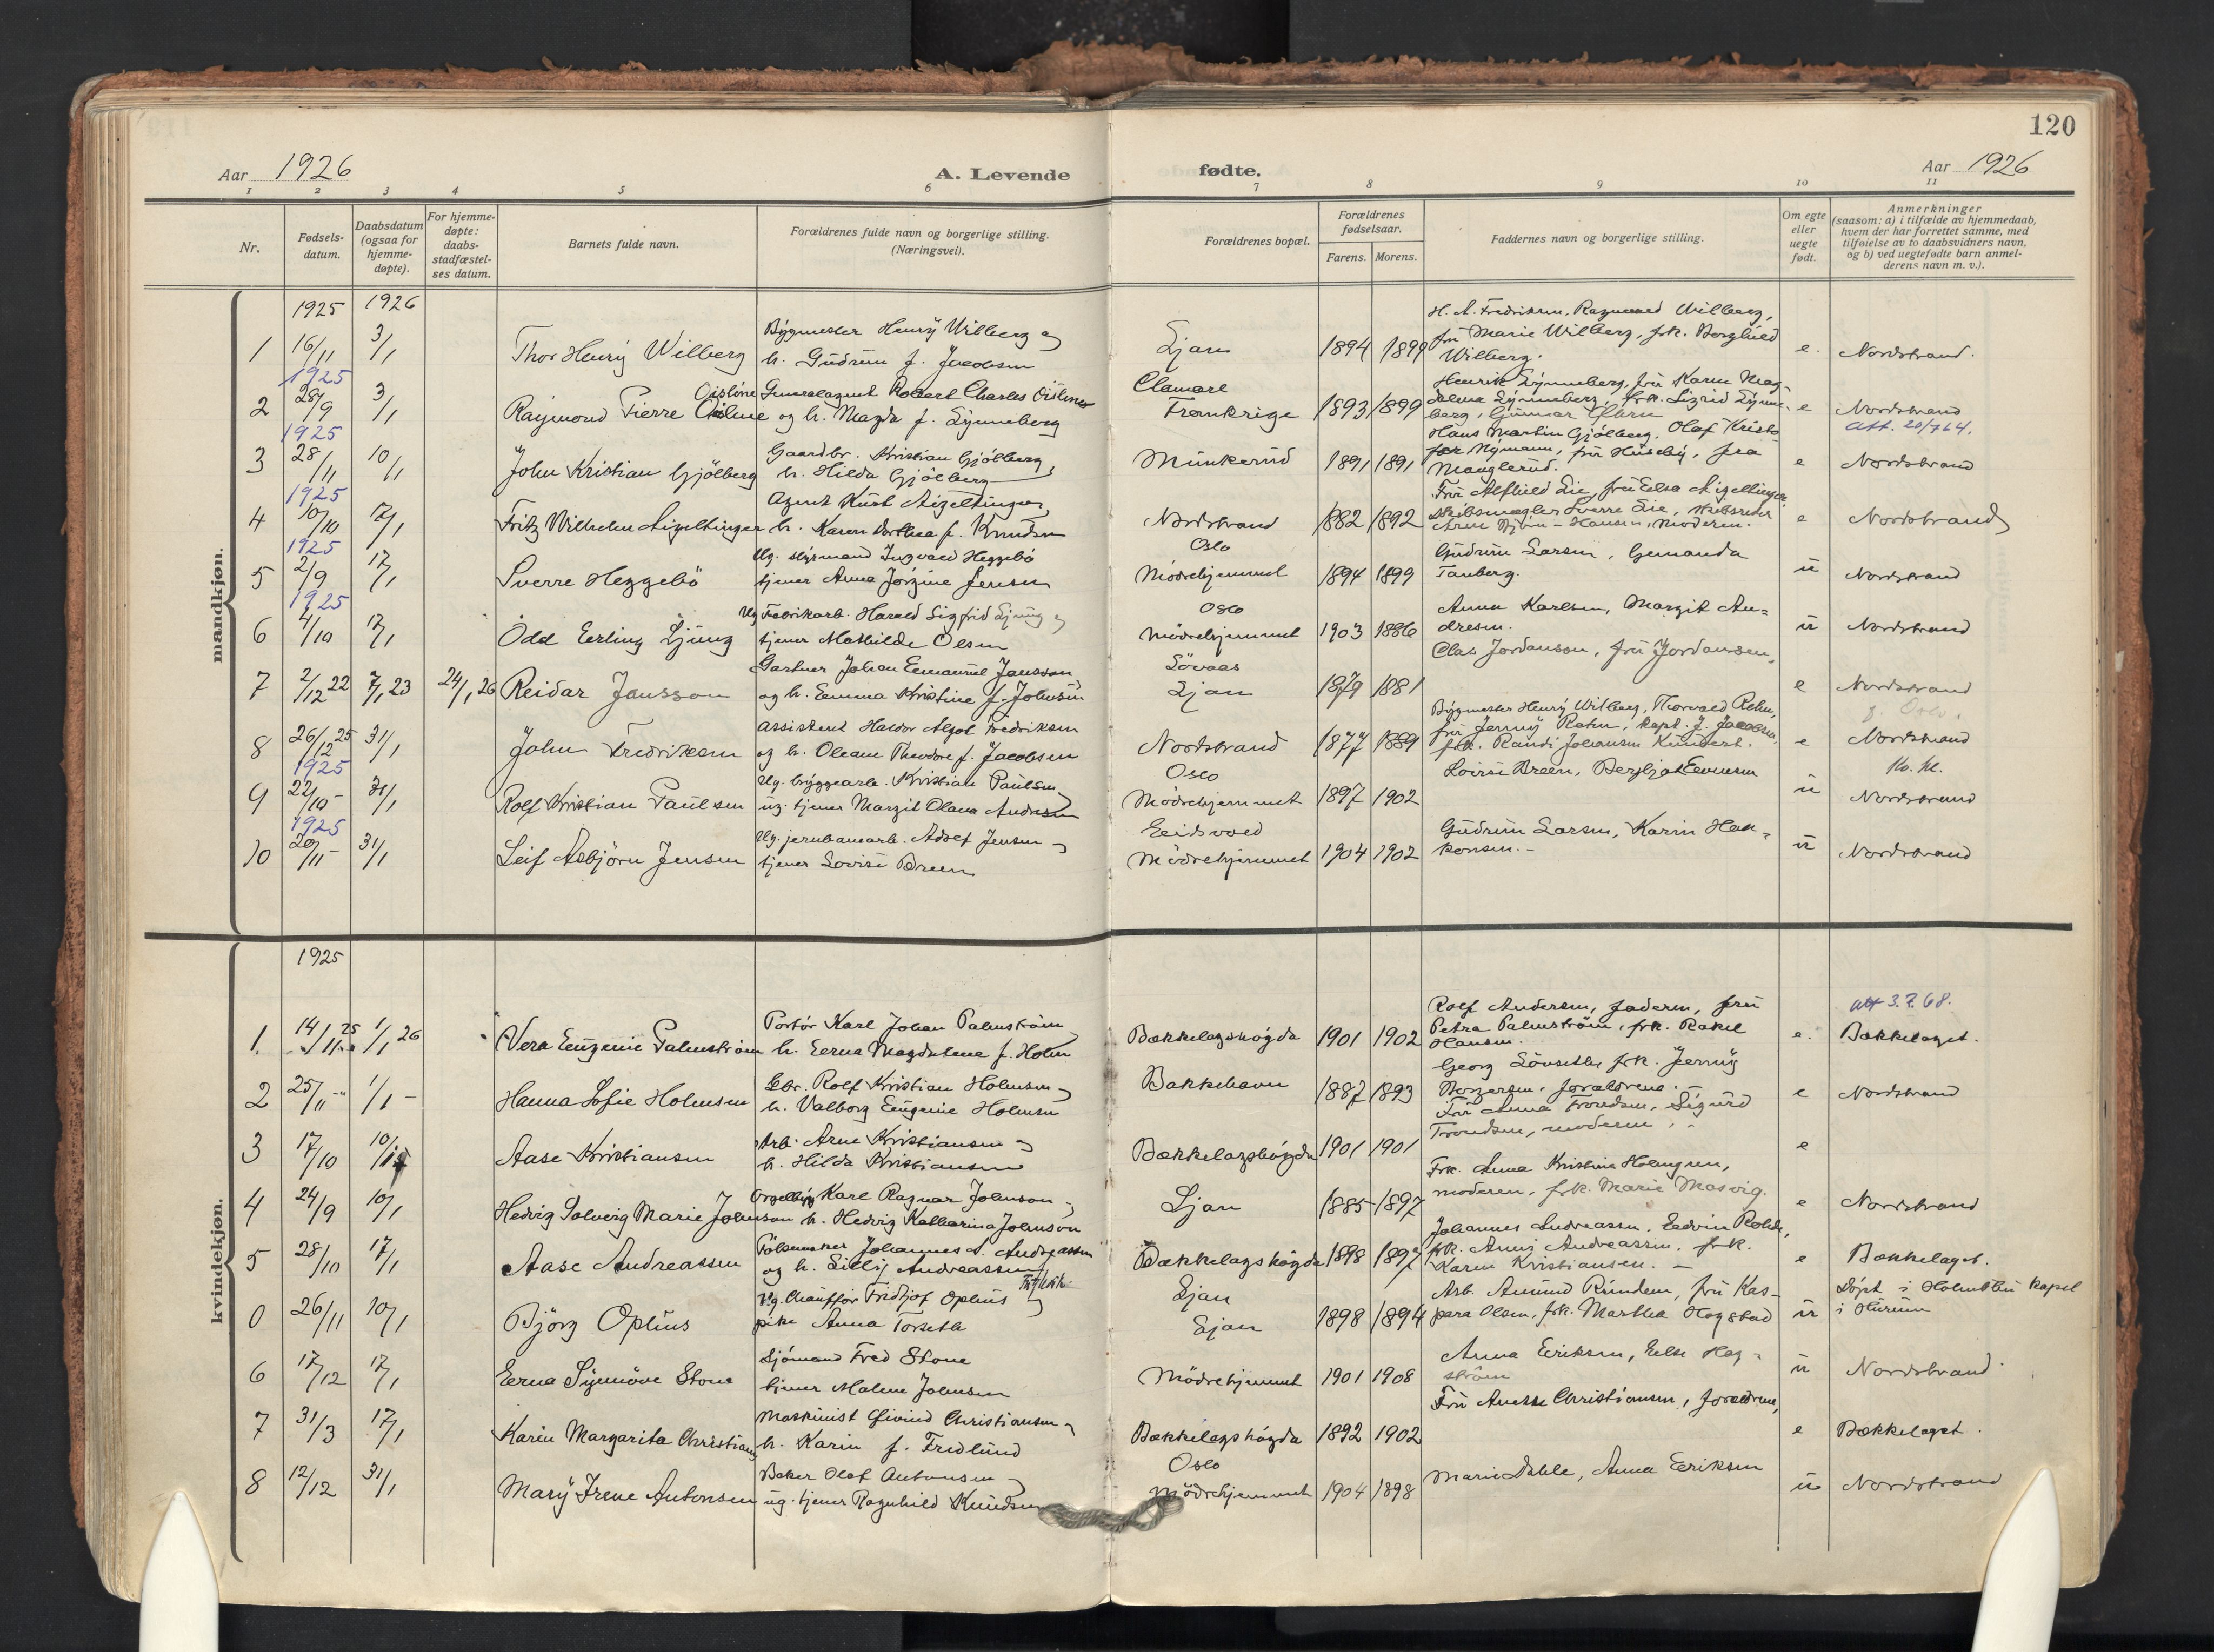 120
Aar 1926
A. Levende
fødte.
Aar 1926
1 2 3 4 5 6 7 8 9 10 11
Nr.
Fødsels-
datum.
Daabsdatum
(ogsaa for
hjemme-
døpte).
For hjemme-
døpte:
daabs-
stadfæstel-
ses datum.
Barnets fulde navn.
Forældrenes fulde navn og borgerlige stilling.
(Næringsvei).
Forældrenes bopæl.
Forældrenes
fødselsaar.
Farens. Morens.
Faddernes navn og borgerlige stilling.
Om egte
eller
uegte
født.
Anmerkninger
(saasom: a) i tilfælde av hjemmedaab,
hvem der har forrettet samme, med
tilføielse av to daabsvidners navn,
og b) ved uegtefødte barn anmel-
derens navn m. v.).
mandkjøn.
1925 1926
1 16/11 3/1 Thor Henry Wilberg
Bygmester Henry Wilberg og
h. Gudrun f. Jacobsen
Ljan 1894 1899
H. A. Fredriksen, Ragnvald Wilberg,
fru Marie Wilberg, frk. Borghild
Wilberg.
e. Nordstrand.
1925
2 28/9 3/1 Raymond Pierre Oistine
Oistine
Generalagent Robert Charles Oistine
og h. Magda f. Lynneberg
Clamart
Frankrige 1893 1899
Henrik Lynneberg, fru Karen Mag-
dalena Lynneberg, frk. Sigrid Lynne-
berg, Gunnar
e Nordstrand
Att. 20/7 64.
1925
3 28/11 10/1 John Kristian Gjölberg
Gaardbr. Kristian Gjölberg
h. Hilda Gjölberg
Munkerud 1891 1891
Hans Martin Gjölberg, Olaf Kristo-
fer Nymann, fru Huseby, fra
Manglerud.
e Nordstrand
1925
4 10/10 17/1 Fritz Wilhelm Aigeltinger
Agent Kurt Aigeltinger
h. Karen Dorthea f. Knudsen
Nordstrand 1882 1892
Fru Alfhild Lie, fru Elsa Aigeltinger
skibsmægler Sverre Lie, skibsreder
Arne Björn-Hansen, moderen.
e Nordstrand
1925
5 2/9 17/1 Sverre Heggebö
Ug. styrmand Ingvald Heggebö
tjener Anna Jörgine Jensen
Oslo
Mödrehjemmet 1894 1899
Gudrun Larsen, Gemanda
Tanberg.
u Nordstrand
1925
6 4/10 17/1 Odd Erling Ljung
Ug Fabrikarb. Harald Sigfrid Ljung og
tjener Mathilde Olsen
Oslo
Mödrehjemmet 1903 1886
Anna Karlsen, Margit An-
dresen.
u Nordstrand
7 2/12 22 7/1 23 24/1 26 Reidar Jansson
Gartner Johan Emanuel Jansson
og h. Emma Kristine f. Johnsen
Lövaas
Ljan 1879 1881
Clas Jordansson, fru Jordansen,
e Nordstrand
f Oslo.
8 26/12 25 31/1 John Fredriksen
Assistent Haldor Algot Fredriksen
og h. Oleane Theodore f. Jacobsen
Nordstrand 1877 1889
Bygmester Henry Wilberg, Thorvald Rehn,
fru Jenny Rehn, kapt. J. Jacobsen,
frk. Randi Johansen Kundert.
e Nordstrand
Kv. Kl.
1925
9 22/10 - 31/1 Rolf Kristian Paulsen
Ug. bryggearb. Kristian Paulsen
ug. tjener Margit Olava Andresen
Oslo
Mödrehjemmet 1897 1902
Lovise Breen, Bergljot Evensen
u Nordstrand
1925
10 20/11 - 31/1 Leif Asbjörn Jensen
Ug. jernbanearb. Adolf Jensen
tjener Lovise Breen
Eidsvold
Mödrehjemmet 1904 1902
Gudrun Larsen, Karin Haa-
konsen. -
u Nordstrand
kvindekjøn.
1925
1. 14/11 25 1/1 26 Vera Eugenie Palmström
Portör Karl Johan Palmström
h. Erna Magdalena f. Holm
Bækkelagshögda 1901 1902
Rolf Andersen, faderen, fru
Petra Palmström, frk. Rakel
Hansen.
e. Att 3.7.68.
Bækkelaget.
2 25/11 - 1/1 - Hanna Sofie Holmsen
Gbr. Rolf Kristian Holmsen
h. Valborg Eugenie Holmsen
Bækkehavn 1887 1893
Georg Lövseth, frk. Jenny
Borgersen, forældrene.
e Nordstrand
3 17/10 10/1 Aase Kristiansen
Arb. Arne Kristiansen
h. Hilda Kristiansen
Bækkelagshögda 1901 1901
Fru Anna Trondsen, Sigurd
Trondsen, moderen.
e
4 24/9 10/1 Hedvig Solveig Marie Johnson
Orgelbyg Karl Ragnar Johnson
h. Hedvig Katharina Johnson
Ljan 1885 1897
Frk. Anna Kristine Holmgren,
moderen, frk. Marie Masvig.
e Nordstrand
5 28/10 17/1 Aase Andreassen
Pölsemaker Johannes A. Andreassen
og h. Lilly Andreassen
Bækkelagshögda 1898 1897
Johannes Andreassen, Edvin Rohde,
frk. Anni Andreassen, frk.
Karen Kristiansen. -
e Bækkelaget.
0 26/11 10/1 Björg Oplius
Ug. Chaufför Fridtjof Oplius
pike Anna Torseth
Ljan
Ljan 1898 1894
Arb. Amund Rundem, fru Kas-
para Olsen, frk. Martha Hogstad
u Döpt i Holmsbu kapel
i Hurum
6 17/12 17/1 Erna Synnöve Stone
Sjömand Fred Stone
tjener Malene Johnsen
Mödrehjemmet 1901 1908
Anna Eriksen, Else Hag-
ström
u Nordstrand
7 31/3 17/1 Karin Margarita Christiansen
Maskinist Eivind Christiansen
h. Karin f. Fredlund
Bækkelagshögda 1892 1902
Fru Anette Christiansen, forældrene,
e Bækkelaget.
8 12/12 31/1 Mary Irene Antonsen
Baker Olaf Antonsen
ug. tjener Ragnhild Knudsen
Oslo
Mödrehjemmet 1904 1898
Marie Dahle, Anna Eriksen
u Nordstrand